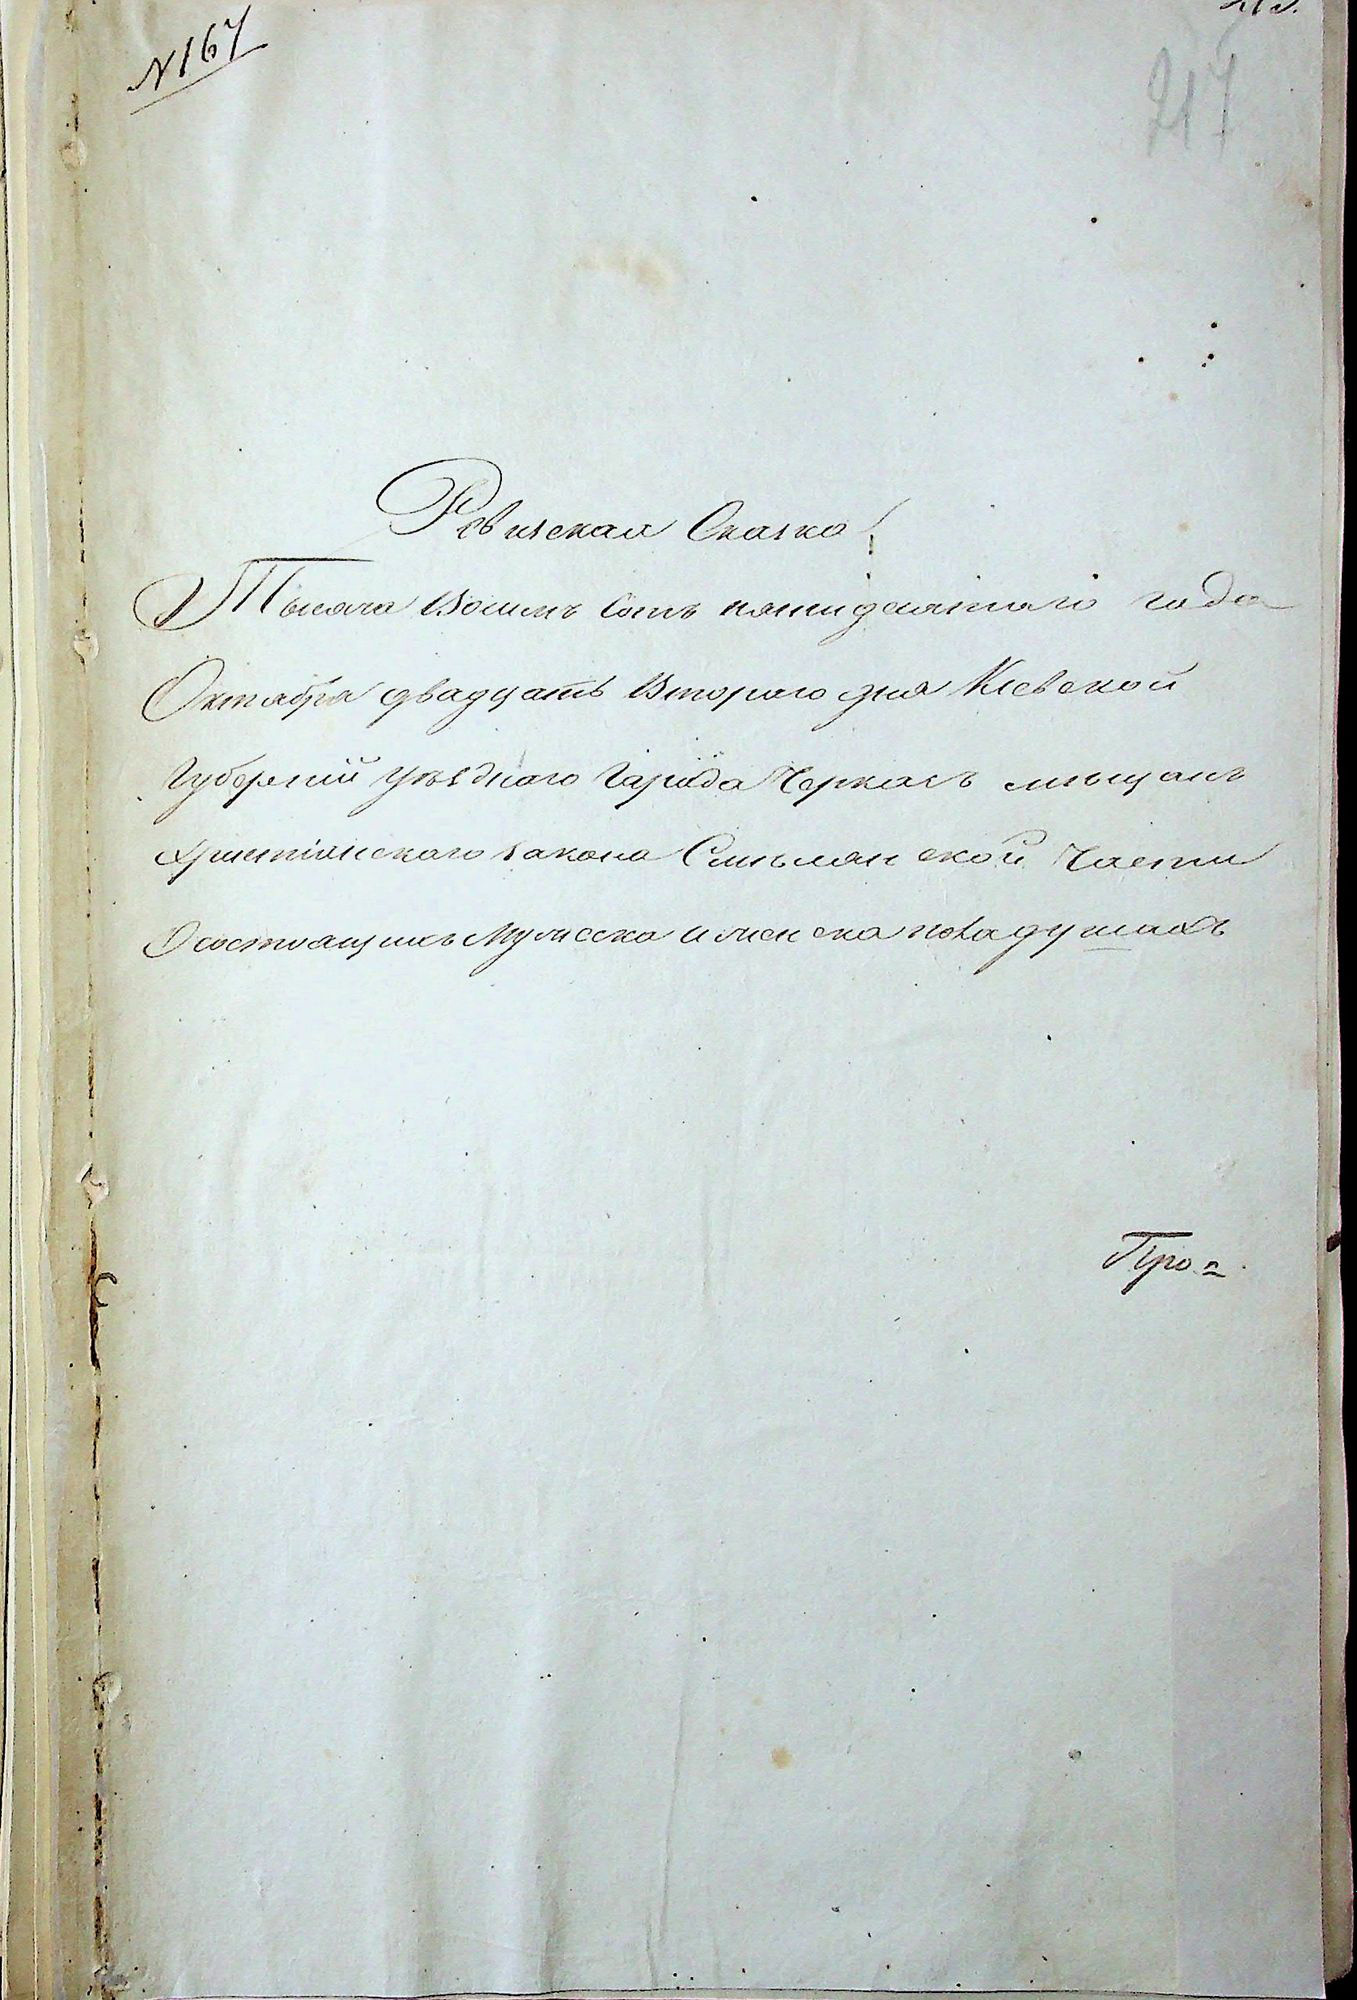 № 167
217
Ревизская Сказка
Тысяча Восемь Сотъ пятидесятаго года
Октября двадцать Втораго дня Кіевской
Губерніи уѣзднаго Города Черкасъ мѣщанъ
христіанскаго закона Смѣлянской Части
О состоящихъ Мужеска и женска пола душахъ
Про=